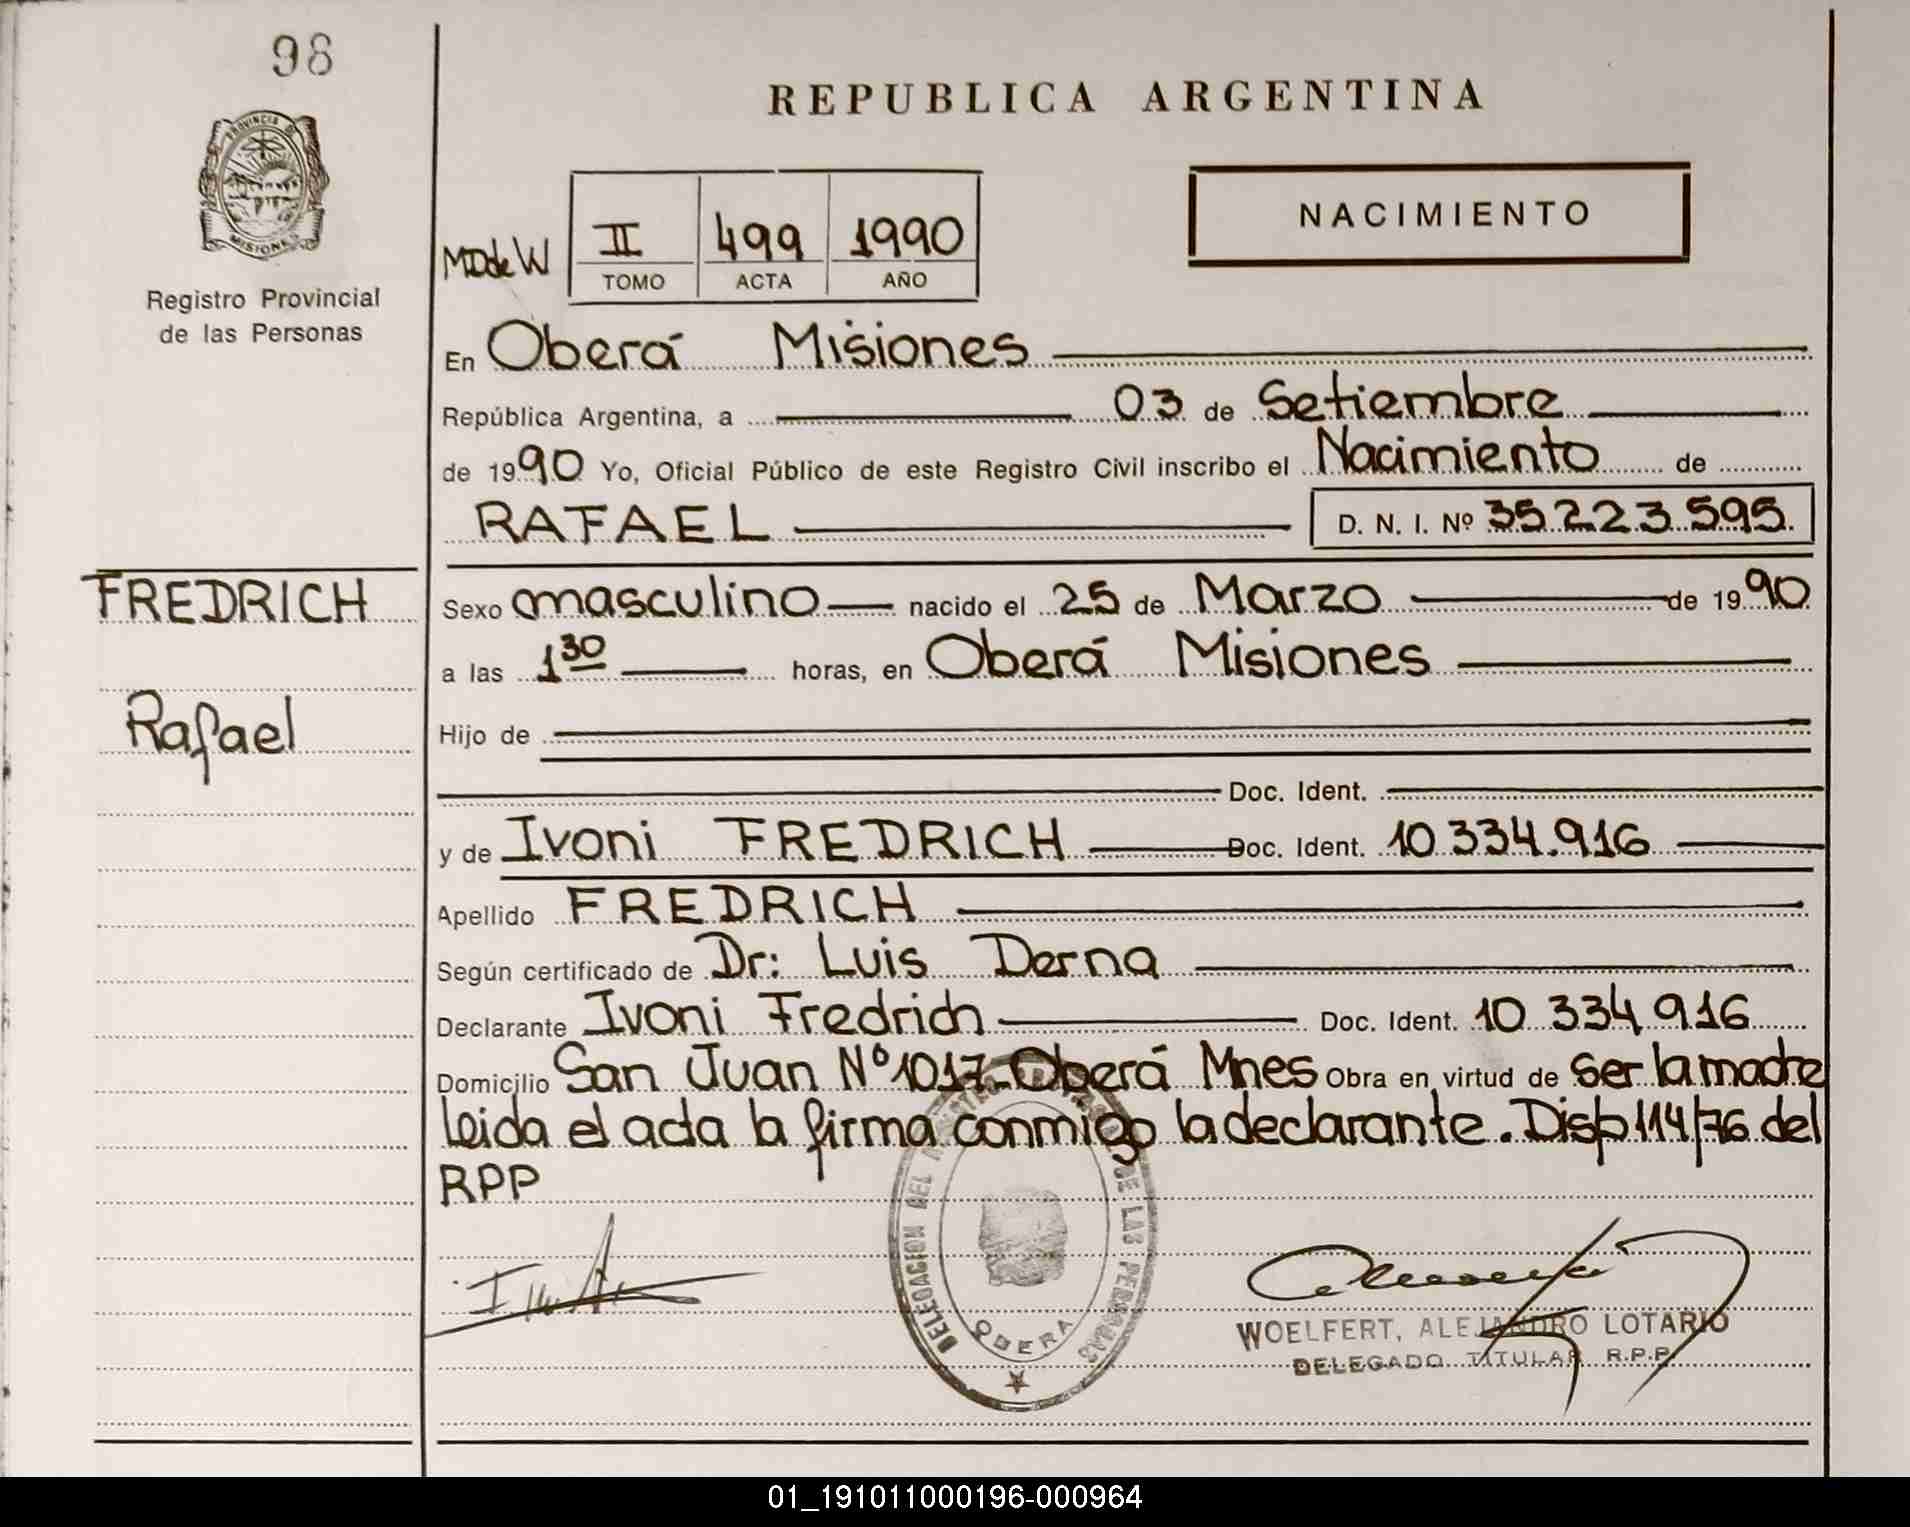 98
REPUBLICA ARGENTINA
PROVINCIA DE
MISIONES
Registro Provincial
de las Personas
MDdeW
II 499 1990
TOMO ACTA AÑO
NACIMIENTO
En Oberá Misiones
República Argentina, a 03 de Setiembre
de 1990 Yo, Oficial Público de este Registro Civil inscribo el Nacimiento de
RAFAEL D. N. I. Nº 35.223.595.
FREDRICH
Rafael
Sexo masculino nacido el 25 de Marzo de 1990
a las 1 30 horas, en Oberá Misiones
Hijo de
Doc. Ident.
y de Ivoni FREDRICH Doc. Ident. 10.334.916
Apellido FREDRICH
Según certificado de Dr: Luis Derna
Declarante Ivoni Fredrich Doc. Ident. 10 334 916
Domicilio San Juan Nº 1017-Oberá Mnes Obra en virtud de ser la madre
leida el acta la firma conmigo la declarante. Disp 114/76 del
RPP
DELEGACION DEL DE LAS PERSONAS
OBERA
WOELFERT, ALEJANDRO LOTARIO
DELEGADO TITULAR R.P.P.
01_191011000196-000964